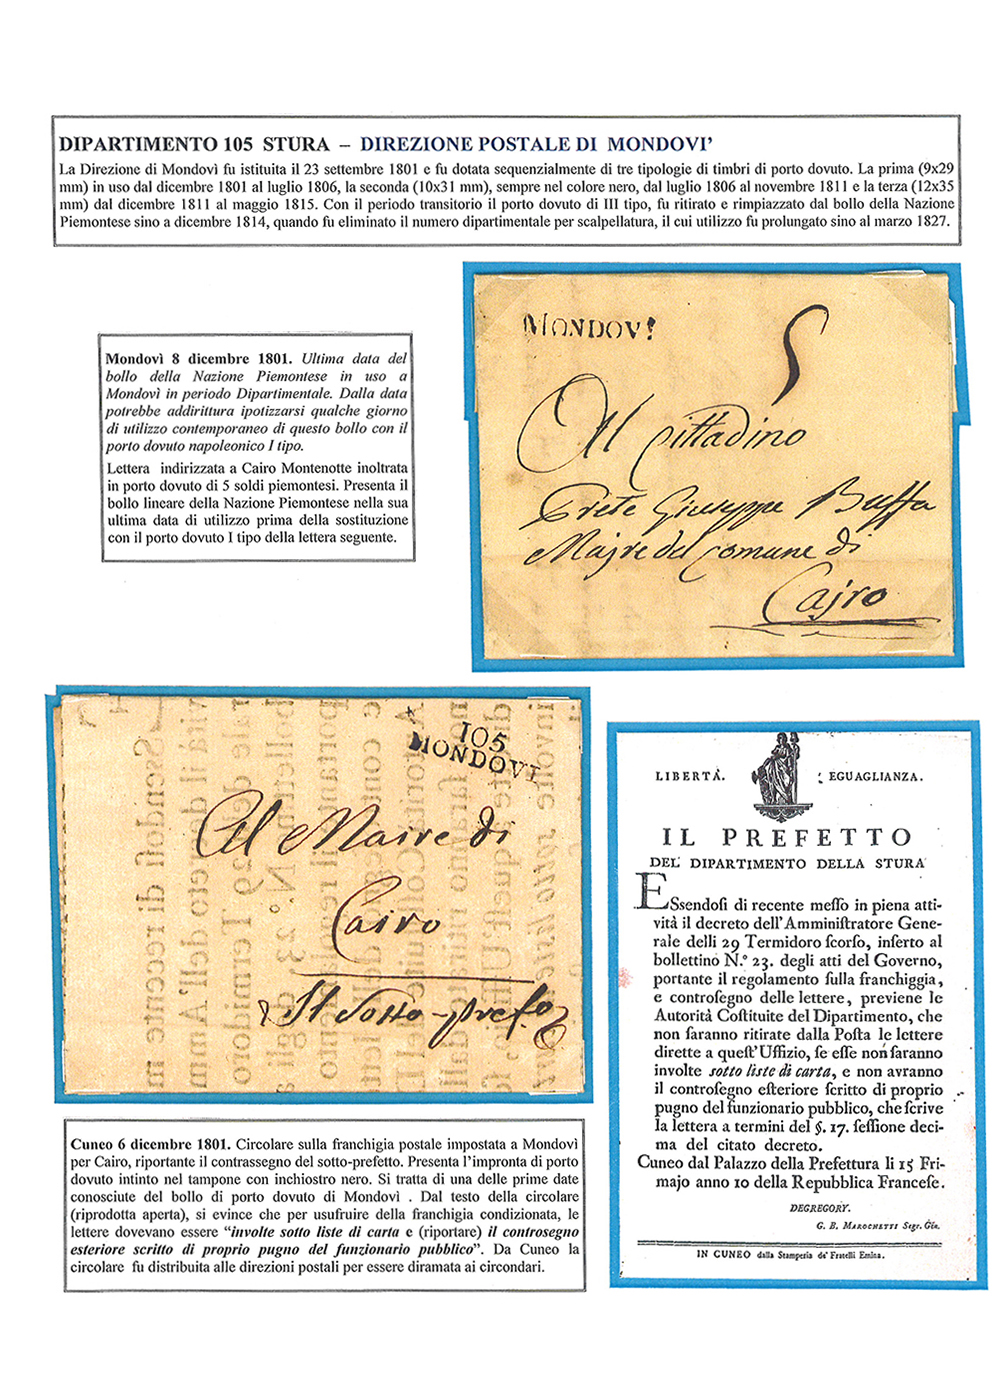 DIPARTIMENTO 105 STURA – DIREZIONE POSTALE DI MONDOVI’
La Direzione di Mondovì fu istituita il 23 settembre 1801 e fu dotata sequenzialmente di tre tipologie di timbri di porto dovuto. La prima (9x29
mm) in uso dal dicembre 1801 al luglio 1806, la seconda (10x31 mm), sempre nel colore nero, dal luglio 1806 al novembre 1811 e la terza (12x35
mm) dal dicembre 1811 al maggio 1815. Con il periodo transitorio il porto dovuto di III tipo, fu ritirato e rimpiazzato dal bollo della Nazione
Piemontese sino a dicembre 1814, quando fu eliminato il numero dipartimentale per scalpellatura, il cui utilizzo fu prolungato sino al marzo 1827.
Mondovì 8 dicembre 1801. Ultima data del
bollo della Nazione Piemontese in uso a
Mondovì in periodo Dipartimentale. Dalla data
potrebbe addirittura ipotizzarsi qualche giorno
di utilizzo contemporaneo di questo bollo con il
porto dovuto napoleonico I tipo.
Lettera indirizzata a Cairo Montenotte inoltrata
in porto dovuto di 5 soldi piemontesi. Presenta il
bollo lineare della Nazione Piemontese nella sua
ultima data di utilizzo prima della sostituzione
con il porto dovuto I tipo della lettera seguente.
MONDOVI
5
Al Cittadino
Prete Giuseppe Buffa
Majre del comune di
Cajro
105
MONDOVI
Al Maire di
Cairo
Il Sotto-prefo
LIBERTÀ. EGUAGLIANZA.
IL PREFETTO
DEL DIPARTIMENTO DELLA STURA
ESsendoſi di recente meſſo in piena atti-
vità il decreto dell'Amminiſtratore Gene-
rale delli 29 Termidoro ſcorſo, inſerto al
bollettino N.° 23. degli atti del Governo,
portante il regolamento ſulla franchiggia,
e controſegno delle lettere, previene le
Autorità Coſtituite del Dipartimento, che
non ſaranno ritirate dalla Poſta le lettere
dirette a queſt'Uffizio, ſe eſſe non ſaranno
involte sotto liste di carta, e non avranno
il controſegno eſteriore ſcritto di proprio
pugno del funzionario pubblico, che ſcrive
la lettera a termini del §. 17. ſeſſione deci-
ma del citato decreto.
Cuneo dal Palazzo della Prefettura li 15 Fri-
majo anno 10 della Repubblica Franceſe.
DEGREGORY.
G. B. MAROCHETTI Segr. Gen.
IN CUNEO dalla Stamperia de' Fratelli Emina.
Cuneo 6 dicembre 1801. Circolare sulla franchigia postale impostata a Mondovì
per Cairo, riportante il contrassegno del sotto-prefetto. Presenta l’impronta di porto
dovuto intinto nel tampone con inchiostro nero. Si tratta di una delle prime date
conosciute del bollo di porto dovuto di Mondovì . Dal testo della circolare
(riprodotta aperta), si evince che per usufruire della franchigia condizionata, le
lettere dovevano essere “involte sotto liste di carta e (riportare) il controsegno
esteriore scritto di proprio pugno del funzionario pubblico”. Da Cuneo la
circolare fu distribuita alle direzioni postali per essere diramata ai circondari.